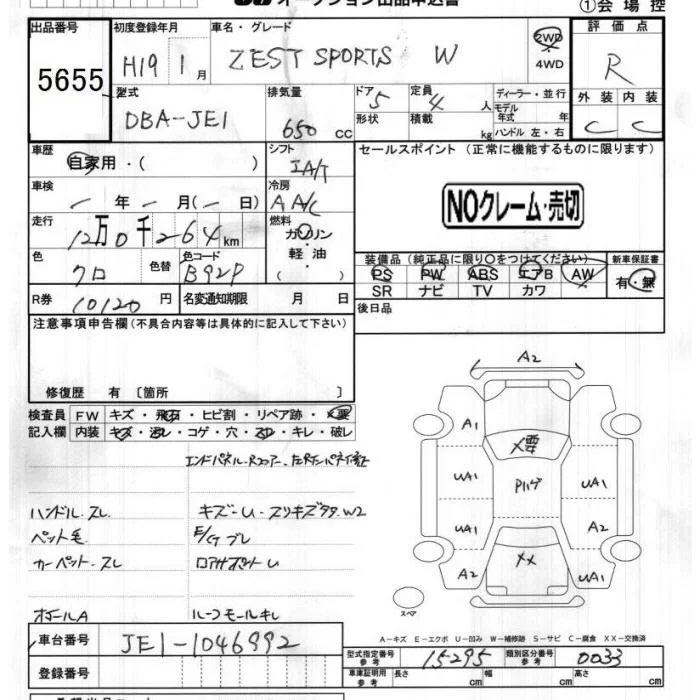 オークション出品申込書
①会場控
出品番号 初度登録年月 車名・グレード 評価点
5655 H19 1月 ZEST SPORTS W 2WD 4WD R
型式 DBA-JE1 排気量 650cc ドア 5 形状 定員 4人 積載 kg ディーラー・並行 モデル年式 年式 ハンドル 左・右 外装 C 内装 C
車歴 自家用・( ) シフト IA/T セールスポイント (正常に機能するものに限ります)
車検 ー年ー月(ー日) 冷房 AA/C
NOクレーム・売切
走行 12万0千264km 燃料 ガソリン 軽油 ( )
色 クロ 色替 色コード B92P
装備品 (純正品に限り○をつけてください) 新車保証書
PS PW ABS エアB AW 有・無
SR ナビ TV カワ
R券 10120円 名変通知期限 月 日 後日品
注意事項申告欄(不具合内容等は具体的に記入して下さい)
修復歴 有 [箇所 ]
検査員 FW キズ・飛石・ヒビ割・リペア跡・×要
記入欄 内装 キズ・汚レ・コゲ・穴・スレ・キレ・破レ
ハンドル.スレ キズ-U-スリキズタタ.W2
ペット毛 E/Gブレ
カーペット.スレ
ルーフモールキレ
A2
A1 ×要
UA1 Pハゲ UA1
UA1 A2
A2 ×× UA1
スペア
A-キズ E-エクボ U-凹み W-補修跡 S-サビ C-腐食 XX-交換済
車台番号 JE1-1046992
型式指定番号 参考 15295 類別区分番号 参考 0033
登録番号
車庫証明用 参考 長さ cm 幅 cm 高さ cm